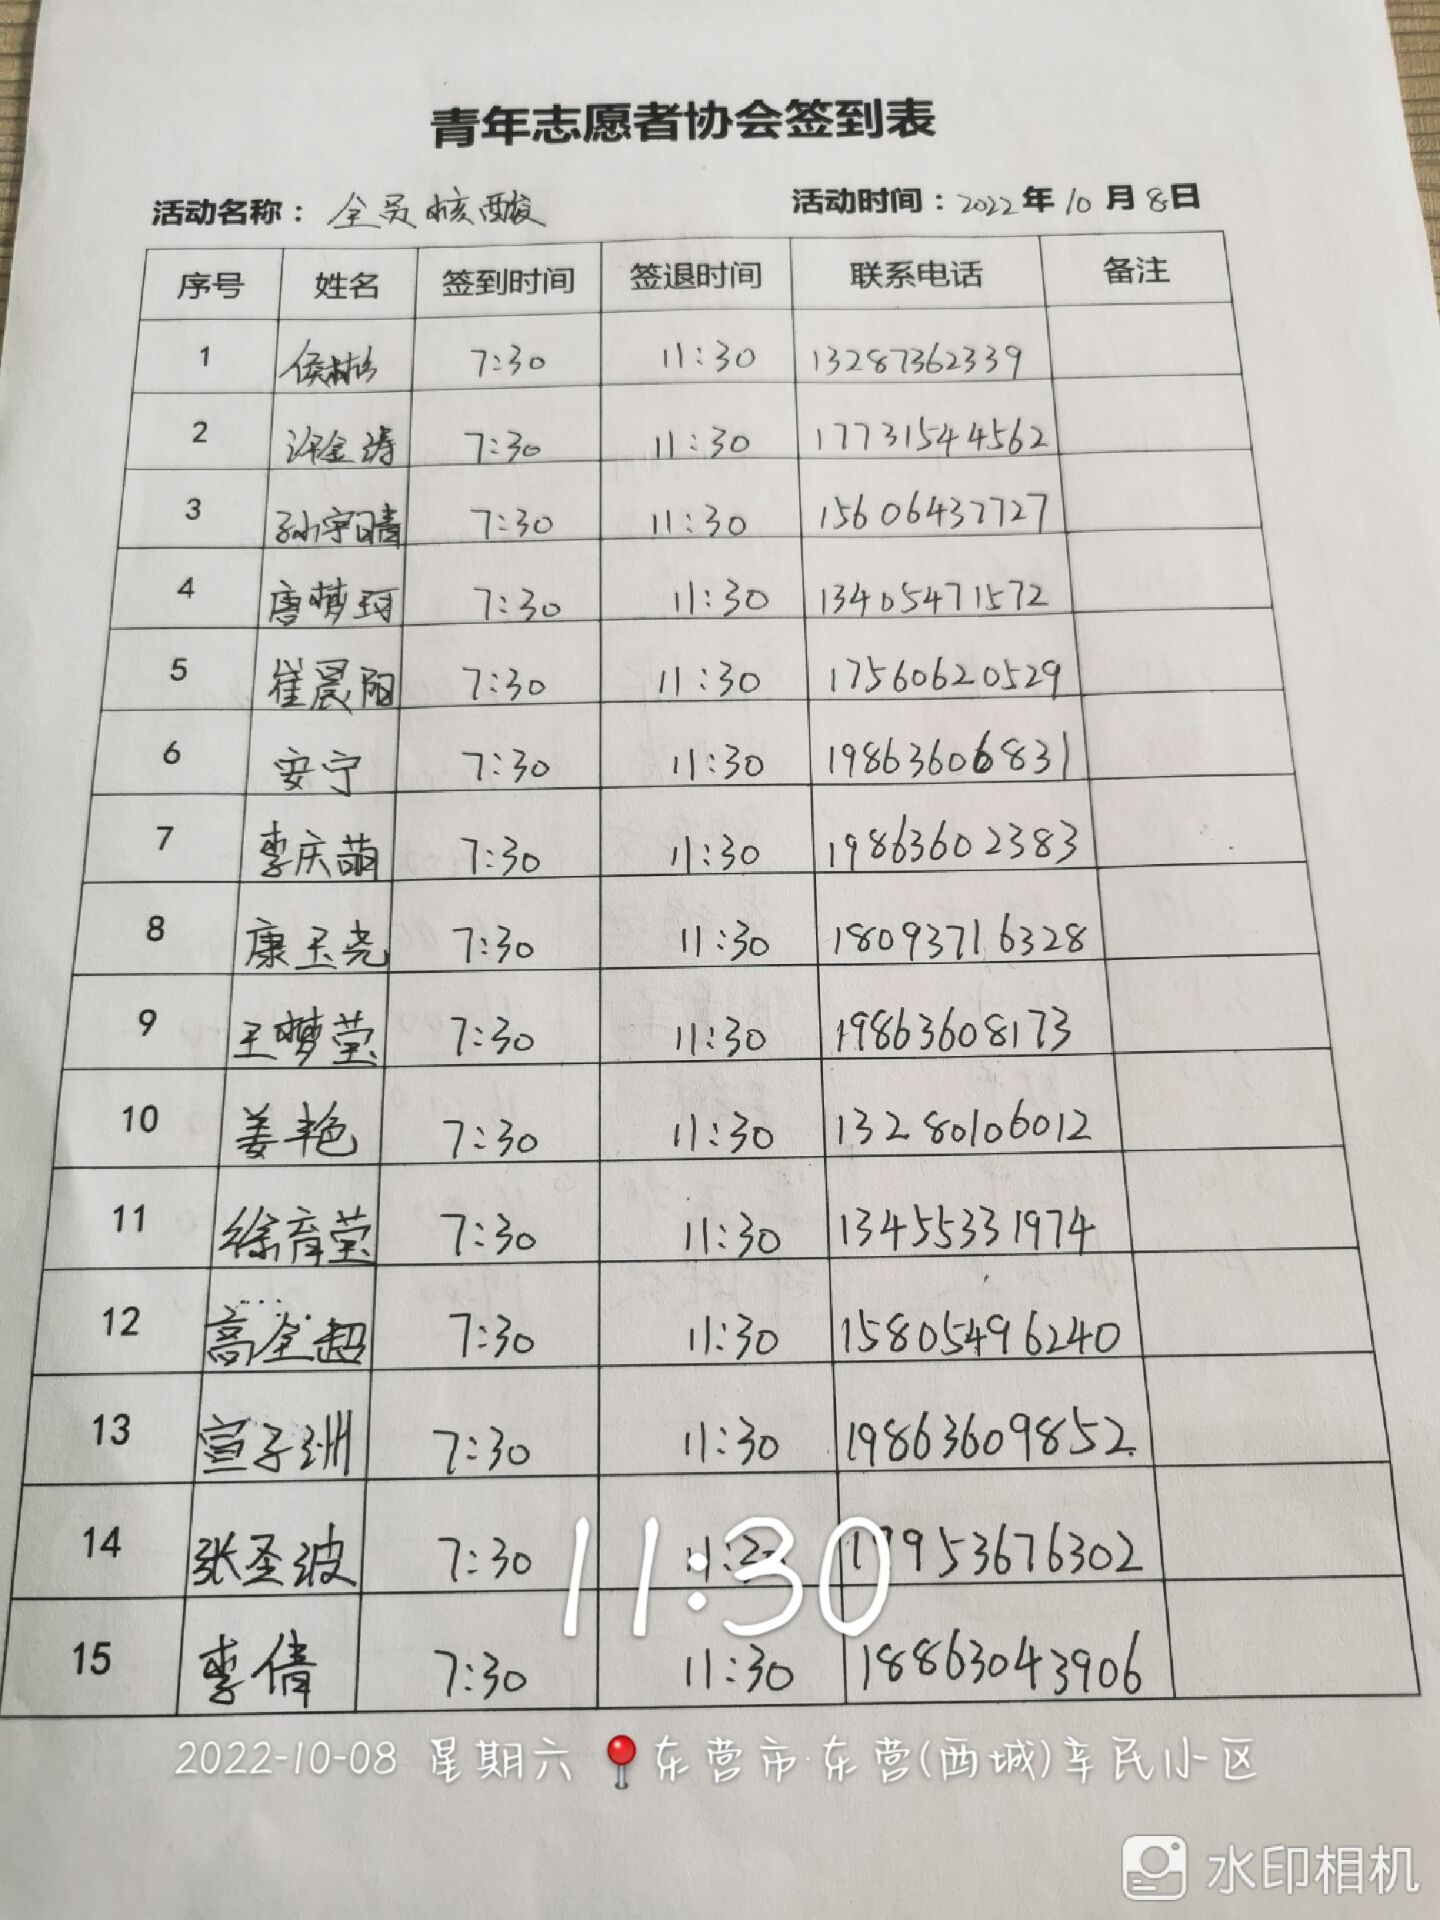 青年志愿者协会签到表
活动名称： 全员核酸 活动时间：2022年10月8日
序号 姓名 签到时间 签退时间 联系电话 备注
1 侯彬彬 7:30 11:30 13287362339
2 许金涛 7:30 11:30 17731544562
3 孙宇晴 7:30 11:30 15606437727
4 唐梦珂 7:30 11:30 13405471572
5 崔晨阳 7:30 11:30 17560620529
6 安宁 7:30 11:30 19863606831
7 李庆萌 7:30 11:30 19863602383
8 康玉尧 7:30 11:30 18093716328
9 王梦莹 7:30 11:30 19863608173
10 姜艳 7:30 11:30 13280106012
11 徐育莹 7:30 11:30 13455331974
12 高全超 7:30 11:30 15805496240
13 宣子洲 7:30 11:30 19863609852
14 张圣波 7:30
11:30
15 李倩 7:30 11:30 18863043906
2022-10-08 星期六 东营市·东营(西城)辛民小区
水印相机